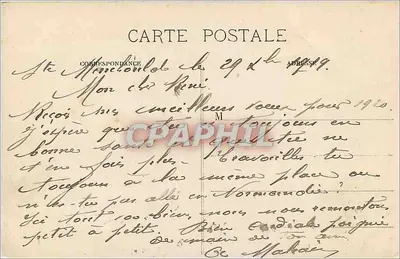 CARTE POSTALE
CORRESPONDANCE
ADRESSE
Ste Menehould le 29 Xbre 1919.
Mon cher René.
Reçois mes meilleurs vœux pour 1920.
M
j'espère que tu es toujours en
CPAPHIL
bonne santé et que tu ne
t'en fais plus. travailles tu
toujours à la même place ou
n'es-tu pas allé en Normandie?
Ici tout va bien, nous nous remontons
petit à petit. Bien cordiale poignée
de main de ton ami